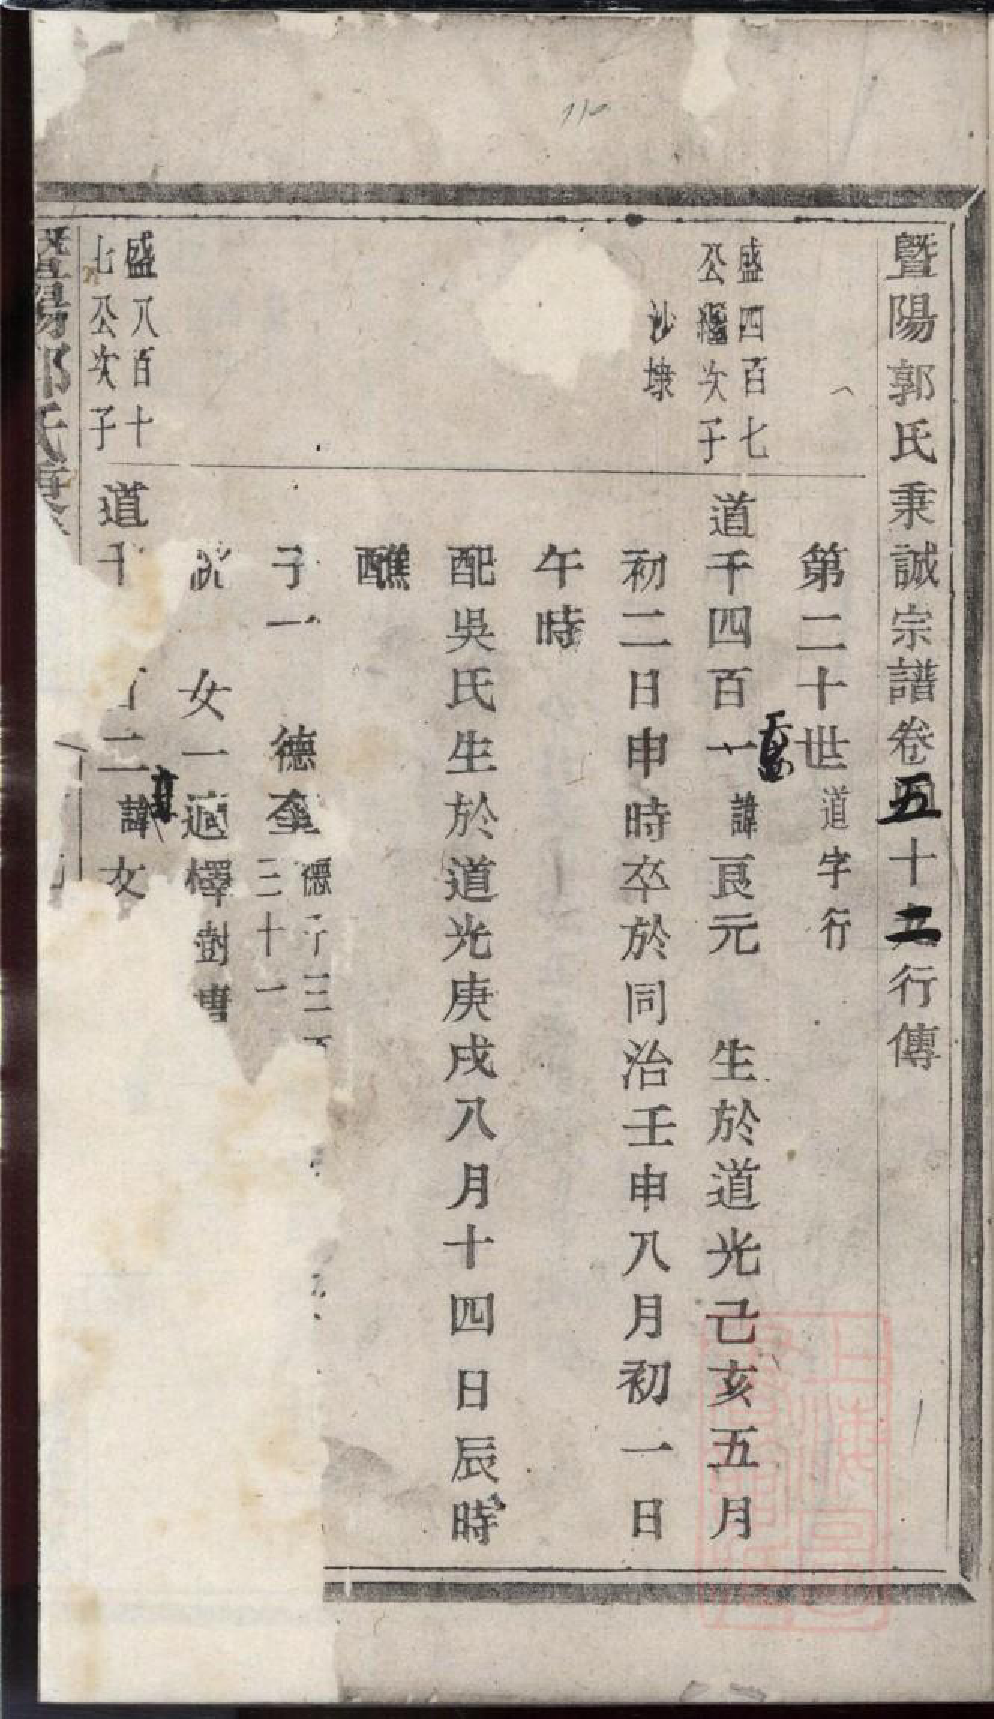 暨陽郭氏秉誠宗譜卷五十二行傳
第二十世道字行
盛四百七
公繼次子
沙埭
道千四百一諱良元 生於道光己亥五月
初二日申時卒於同治壬申八月初一日
午時
配吳氏生於道光庚戌八月十四日辰時
醮
子一 德奎德千三百
三十一
女一適檡樹
盛八百十
七公次子
道千 百二諱文
暨陽郭氏